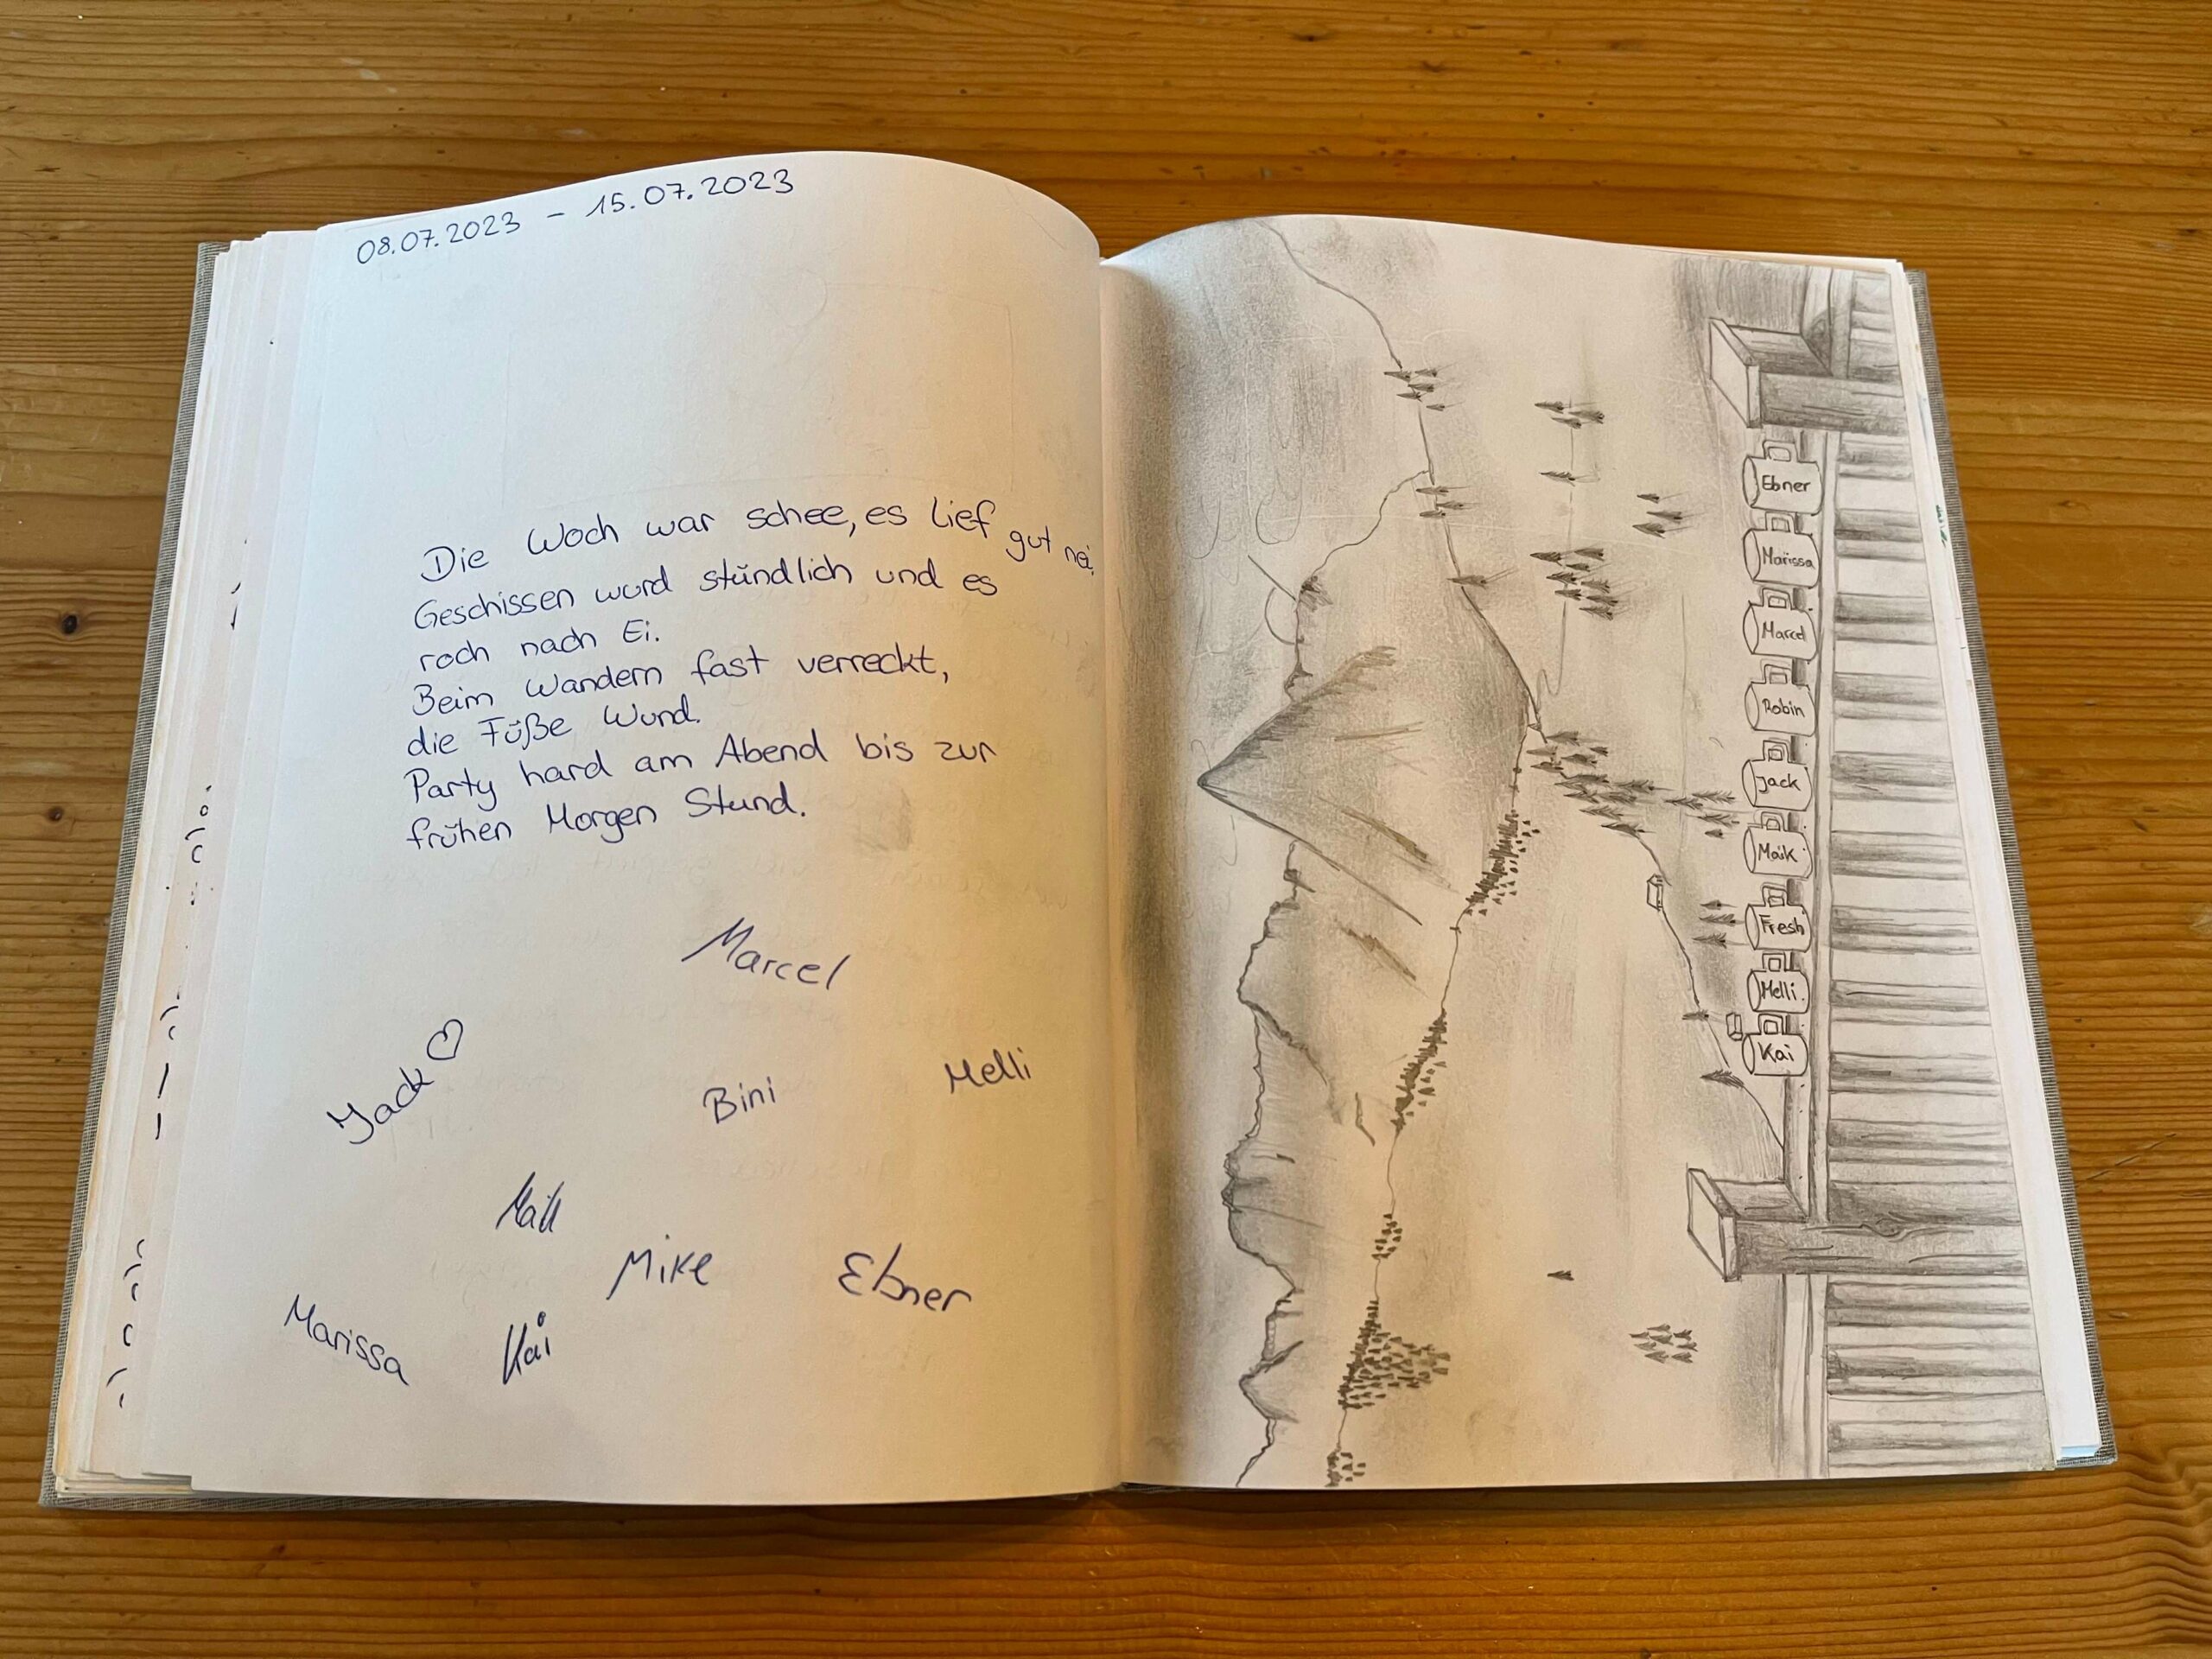 08.07.2023 - 15.07.2023
Die Woch war schee, es lief gut nei.
Geschissen wurd stündlich und es
roch nach Ei.
Beim Wandern fast verreckt,
die Füße Wund.
Party hard am Abend bis zur
frühen Morgen Stund.
Marcel
Jack ♡
Bini
Melli
Mike
Ebner
Marissa
Kai
Ebner
Marissa
Marcel
Robin
Jack
Maik
Fresh
Melli
Kai